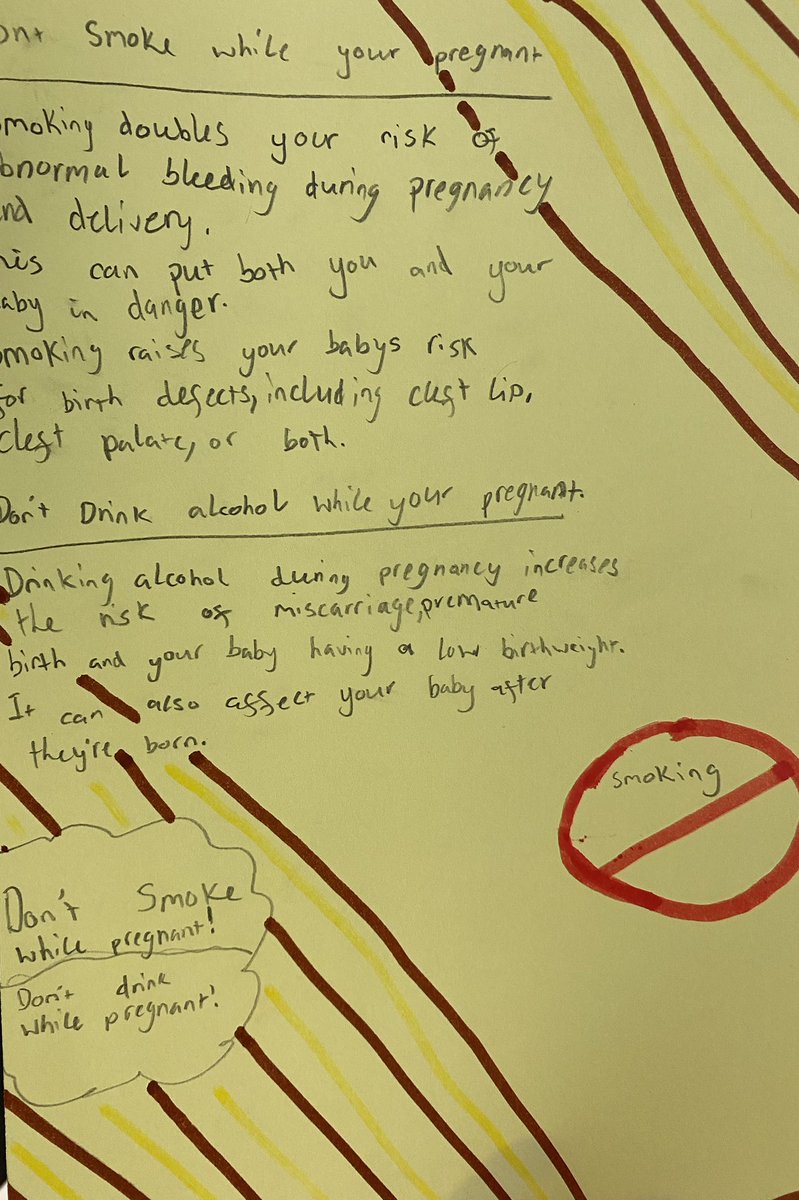 ont Smoke while your pregnant
moking doubles your risk of
bnormal bleeding during pregnancy
nd delivery.
his can put both you and your
aby in danger.
smoking raises your babys risk
for birth defects, including cleft lip,
cleft palate, or both.
Don't Drink alcohol while your pregnant.
Drinking alcohol during pregnancy increases
the risk of miscarriage, premature
birth and your baby having a low birthweight.
It can also affect your baby after
they're born.
smoking
Don't Smoke
while pregnant!
Don't drink
while pregnant!